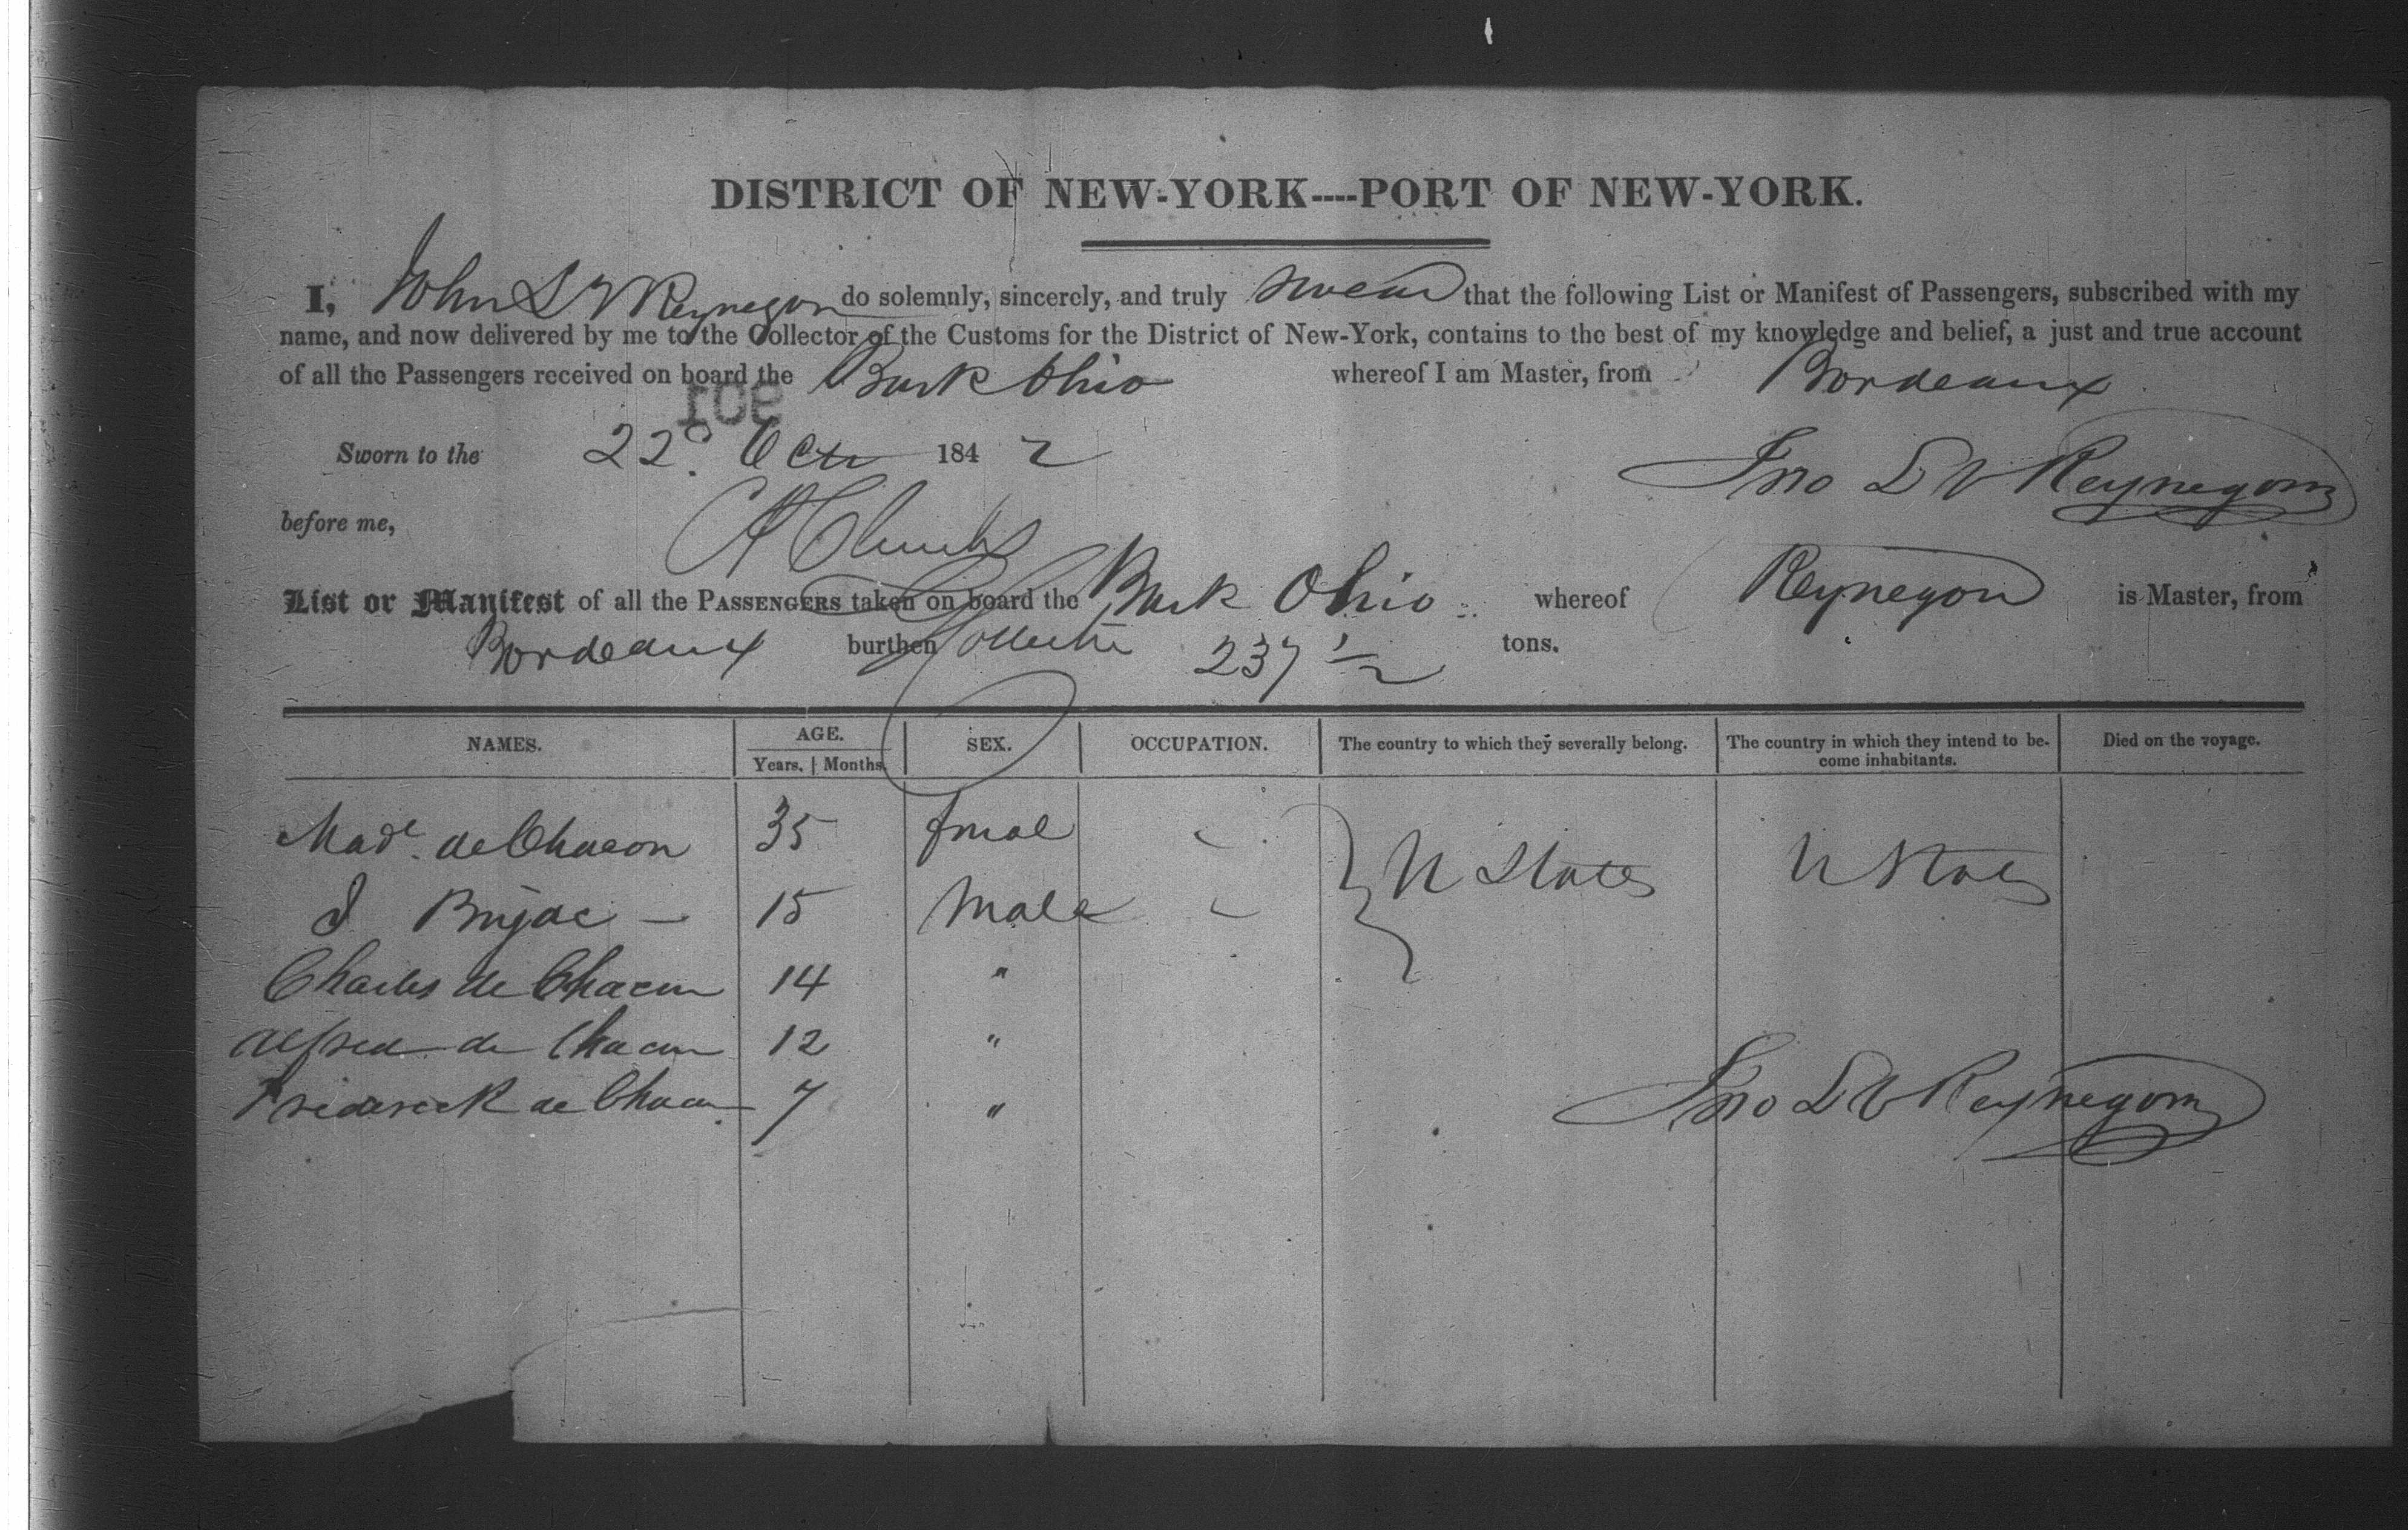 DISTRICT OF NEW-YORK----PORT OF NEW-YORK.
I, John D V Reynegom do solemnly, sincerely, and truly swear that the following List or Manifest of Passengers, subscribed with my
name, and now delivered by me to the Collector of the Customs for the District of New-York, contains to the best of my knowledge and belief, a just and true account
of all the Passengers received on board the Bark Ohio whereof I am Master, from Bordeaux
Sworn to the 22d. Oct 1842
Jno D V Reynegom
before me,
List or Manifest of all the PASSENGERS taken on board the Bark Ohio whereof Reynegom is Master, from
Bordeaux burthen 237 1/2 tons.
NAMES. AGE. SEX. OCCUPATION. The country to which they severally belong. The country in which they intend to be- Died on the voyage.
Years. Months. come inhabitants.
Made. de Chacon 35 fmal
Bujac — 15 Male U States U States
Charles de Chacon 14 "
Alfred de Chacon 12 "
Frederick de Chacon 7 "
Jno D V Reynegom